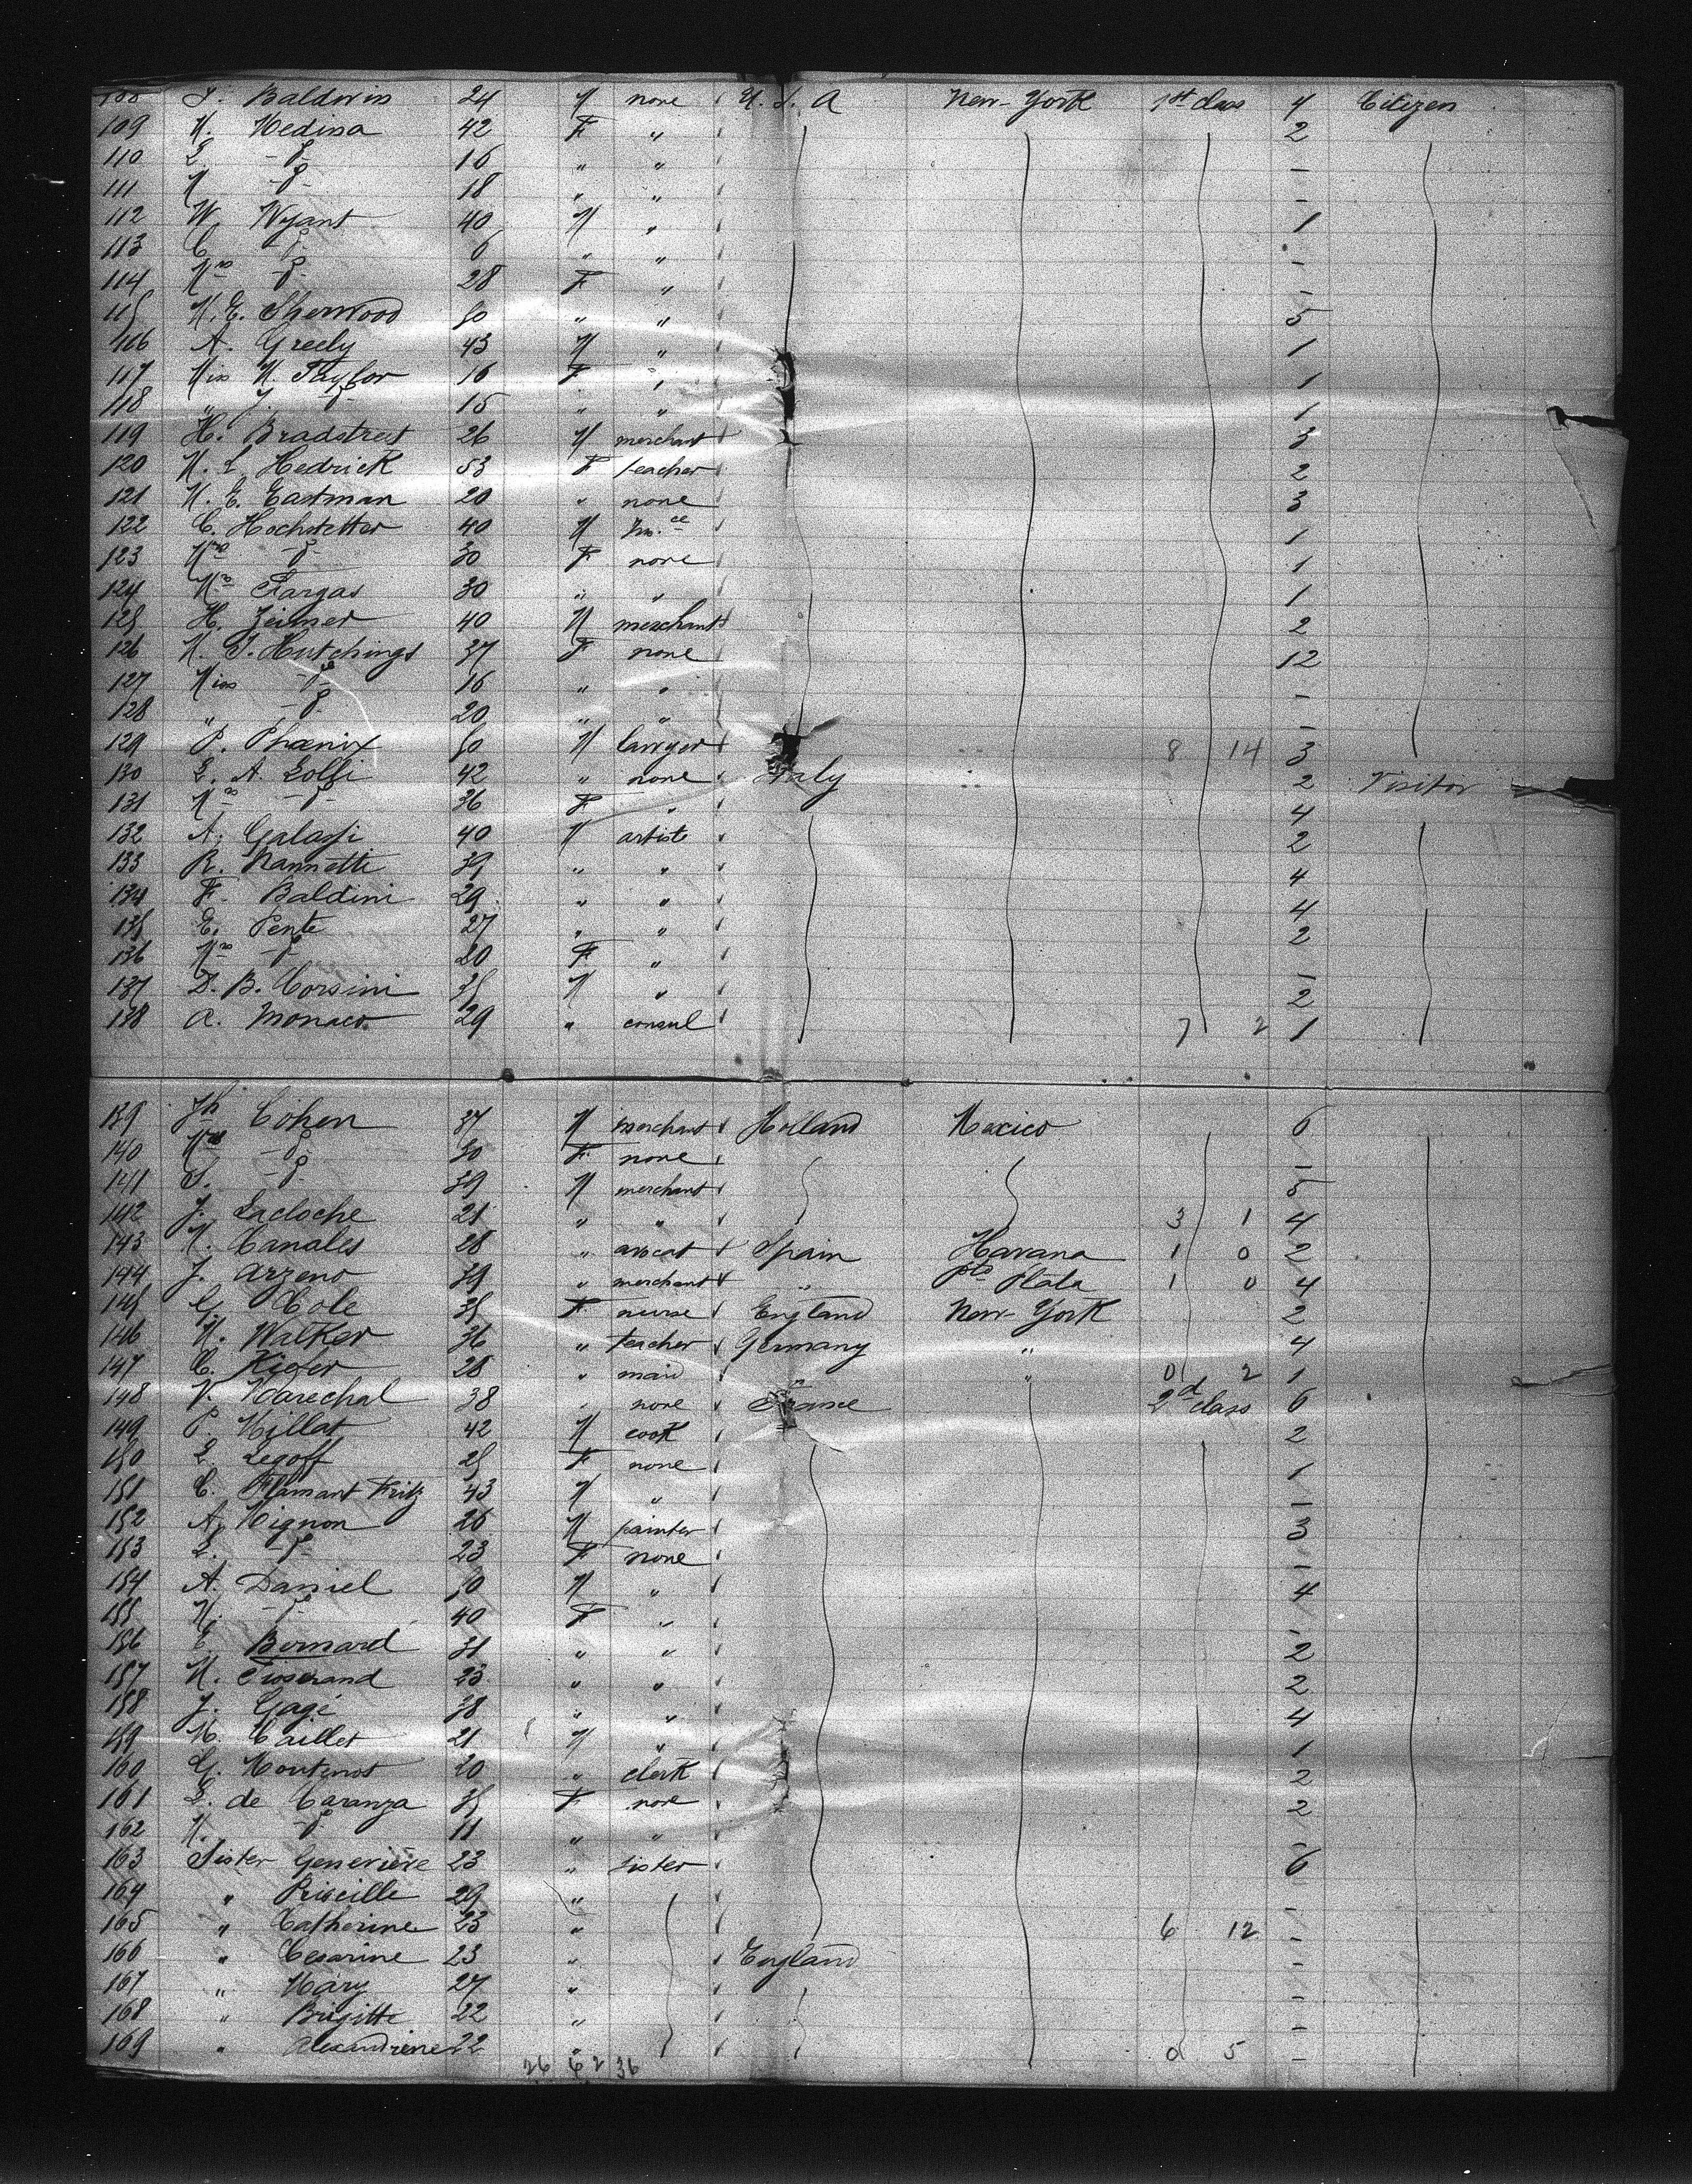 108 J. Baldwin 24 M none U. S. A New-York 1st class 4 Citizen
109 M. Medina 42 F " 2
110 L. -d°- 16 " " -
111 M -d°- 18 " " -
112 W. Wyant 40 M " 1
113 C. -d°- 6 " " -
114 Mrs -d°- 28 F " -
115 M. E. Sherwood 50 " " 5
116 A. Greely 43 M " 1
117 Miss M. Taylor 16 F " 1
118 " J. -d°- 15 " " 1
119 H. Bradstreet 26 M merchant 3
120 M. L. Hedrick 53 F teacher 2
121 M. E. Eastman 20 " none 3
122 C. Hochstetter 40 M 1
123 Mrs -d°- 30 F none 1
124 Mrs Fargas 30 " " 1
125 H. Zeimer 40 M merchant 2
126 M. J. Hutchings 37 F none 12
127 Miss -d°- 16 " " -
128 " -d°- 20 " " -
129 P. Phœnix 50 M lawyer 8 14 3
130 L. A. Lolli 42 " none Italy 2 Visitor
131 Mrs -d°- 36 F " 4
132 A. Galassi 40 M artiste 2
133 R. Nannetti 39 " " 4
134 F. Baldini 29 " " 4
135 E. Pente 27 " " 2
136 Mrs -d°- 20 F " -
137 D. B. Corsini 35 M " 2
138 A. Monaco 29 " consul 7 2 1
139 Jh Cohen 37 M merchant Holland Mexico 6
140 Mrs -d°- 30 F none -
141 S. -d°- 39 M merchant 5
142 J. Lacloche 21 " " 3 1 4
143 M. Canales 28 " avocat Spain Havana 1 0 2
144 J. Arzeno 39 " merchant " pto Plata 1 0 4
145 G. Cole 35 F nurse England New-York 2
146 M. Walker 36 " teacher Germany " 4
147 C. Kiefer 28 " maid " " 0 2 1
148 V. Marechal 38 " none France 2d class 6
149 P. Millat 42 M cook 2
150 L. Legoff 25 F none 1
151 C. Flamant Fritz 43 M " -
152 A. Mignon 26 M painter 3
153 L. -d°- 23 F none -
154 A. Daniel 50 M " 4
155 M. -d°- 40 F " -
156 E. Bernard 31 " " 2
157 M. 23 " " 2
158 J. Gagé 38 " " 4
159 M. Caillet 21 M " 1
160 G. 20 " clerk 2
161 L. de Caranza 35 F none 2
162 M. -d°- 11 " " -
163 Sister Geneviève 23 " sister 6
164 " Priscille 29 " -
165 " Catherine 23 " 6 12 -
166 " Cesarine 23 " England -
167 " Mary 27 " -
168 " Brigitte 22 " -
169 " Alexandrine 22 " 0 5 -
26 6 2 36